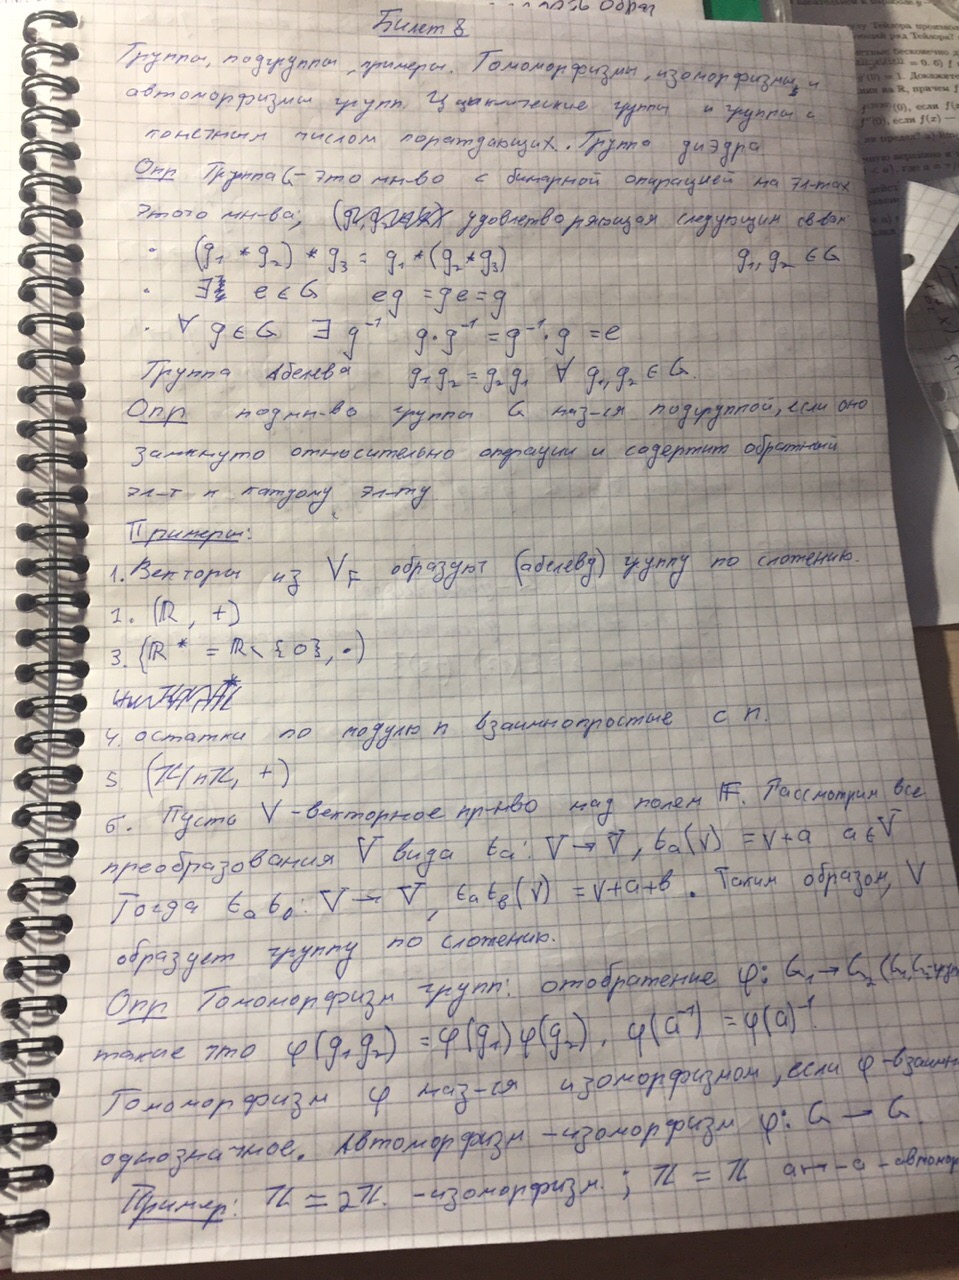 Билет 8
Группы, подгруппы, примеры. Гомоморфизмы, изоморфизмы и
автоморфизмы групп. Циклические группы и группы с
конечным числом порождающих. Группа диэдра
Опр Группа G - это мн-во с бинарной операцией на эл-тах
этого мн-ва, удовлетворяющая следующим св-вам
· (g₁ * g₂) * g₃ = g₁ * (g₂ * g₃) g₁, g₂ ∈ G
· ∃ e ∈ G eg = ge = g
· ∀ g ∈ G ∃ g⁻¹ g·g⁻¹ = g⁻¹·g = e
Группа Абелева g₁g₂ = g₂g₁ ∀ g₁, g₂ ∈ G.
Опр подмн-во группы G наз-ся подгруппой, если оно
замкнуто относительно операции и содержит обратный
эл-т к каждому эл-ту
Примеры:
1. Векторы из V_F образуют (абелеву) группу по сложению.
2. (ℝ, +)
3. (ℝ* = ℝ \ {0}, ·)
4. остатки по модулю n взаимнопростые с n.
5. (ℤ/nℤ, +)
6. Пусть V - векторное пр-нво над полем F. Рассмотрим все
преобразования V вида tₐ: V → V, tₐ(v) = v+a a ∈ V
Тогда tₐt_b: V → V, tₐt_b(v) = v+a+b. Таким образом, V
образует группу по сложению.
Опр Гомоморфизм групп: отображение φ: G₁ → G₂ (G₁, G₂ -
такие что φ(g₁g₂) = φ(g₁)φ(g₂), φ(a⁻¹) = φ(a)⁻¹.
Гомоморфизм φ наз-ся изоморфизмом, если φ - взаимно
однозначное. Автоморфизм - изоморфизм φ: G → G.
Пример: ℤ ≅ 2ℤ - изоморфизм.; ℤ = ℤ a ↦ -a - автомор